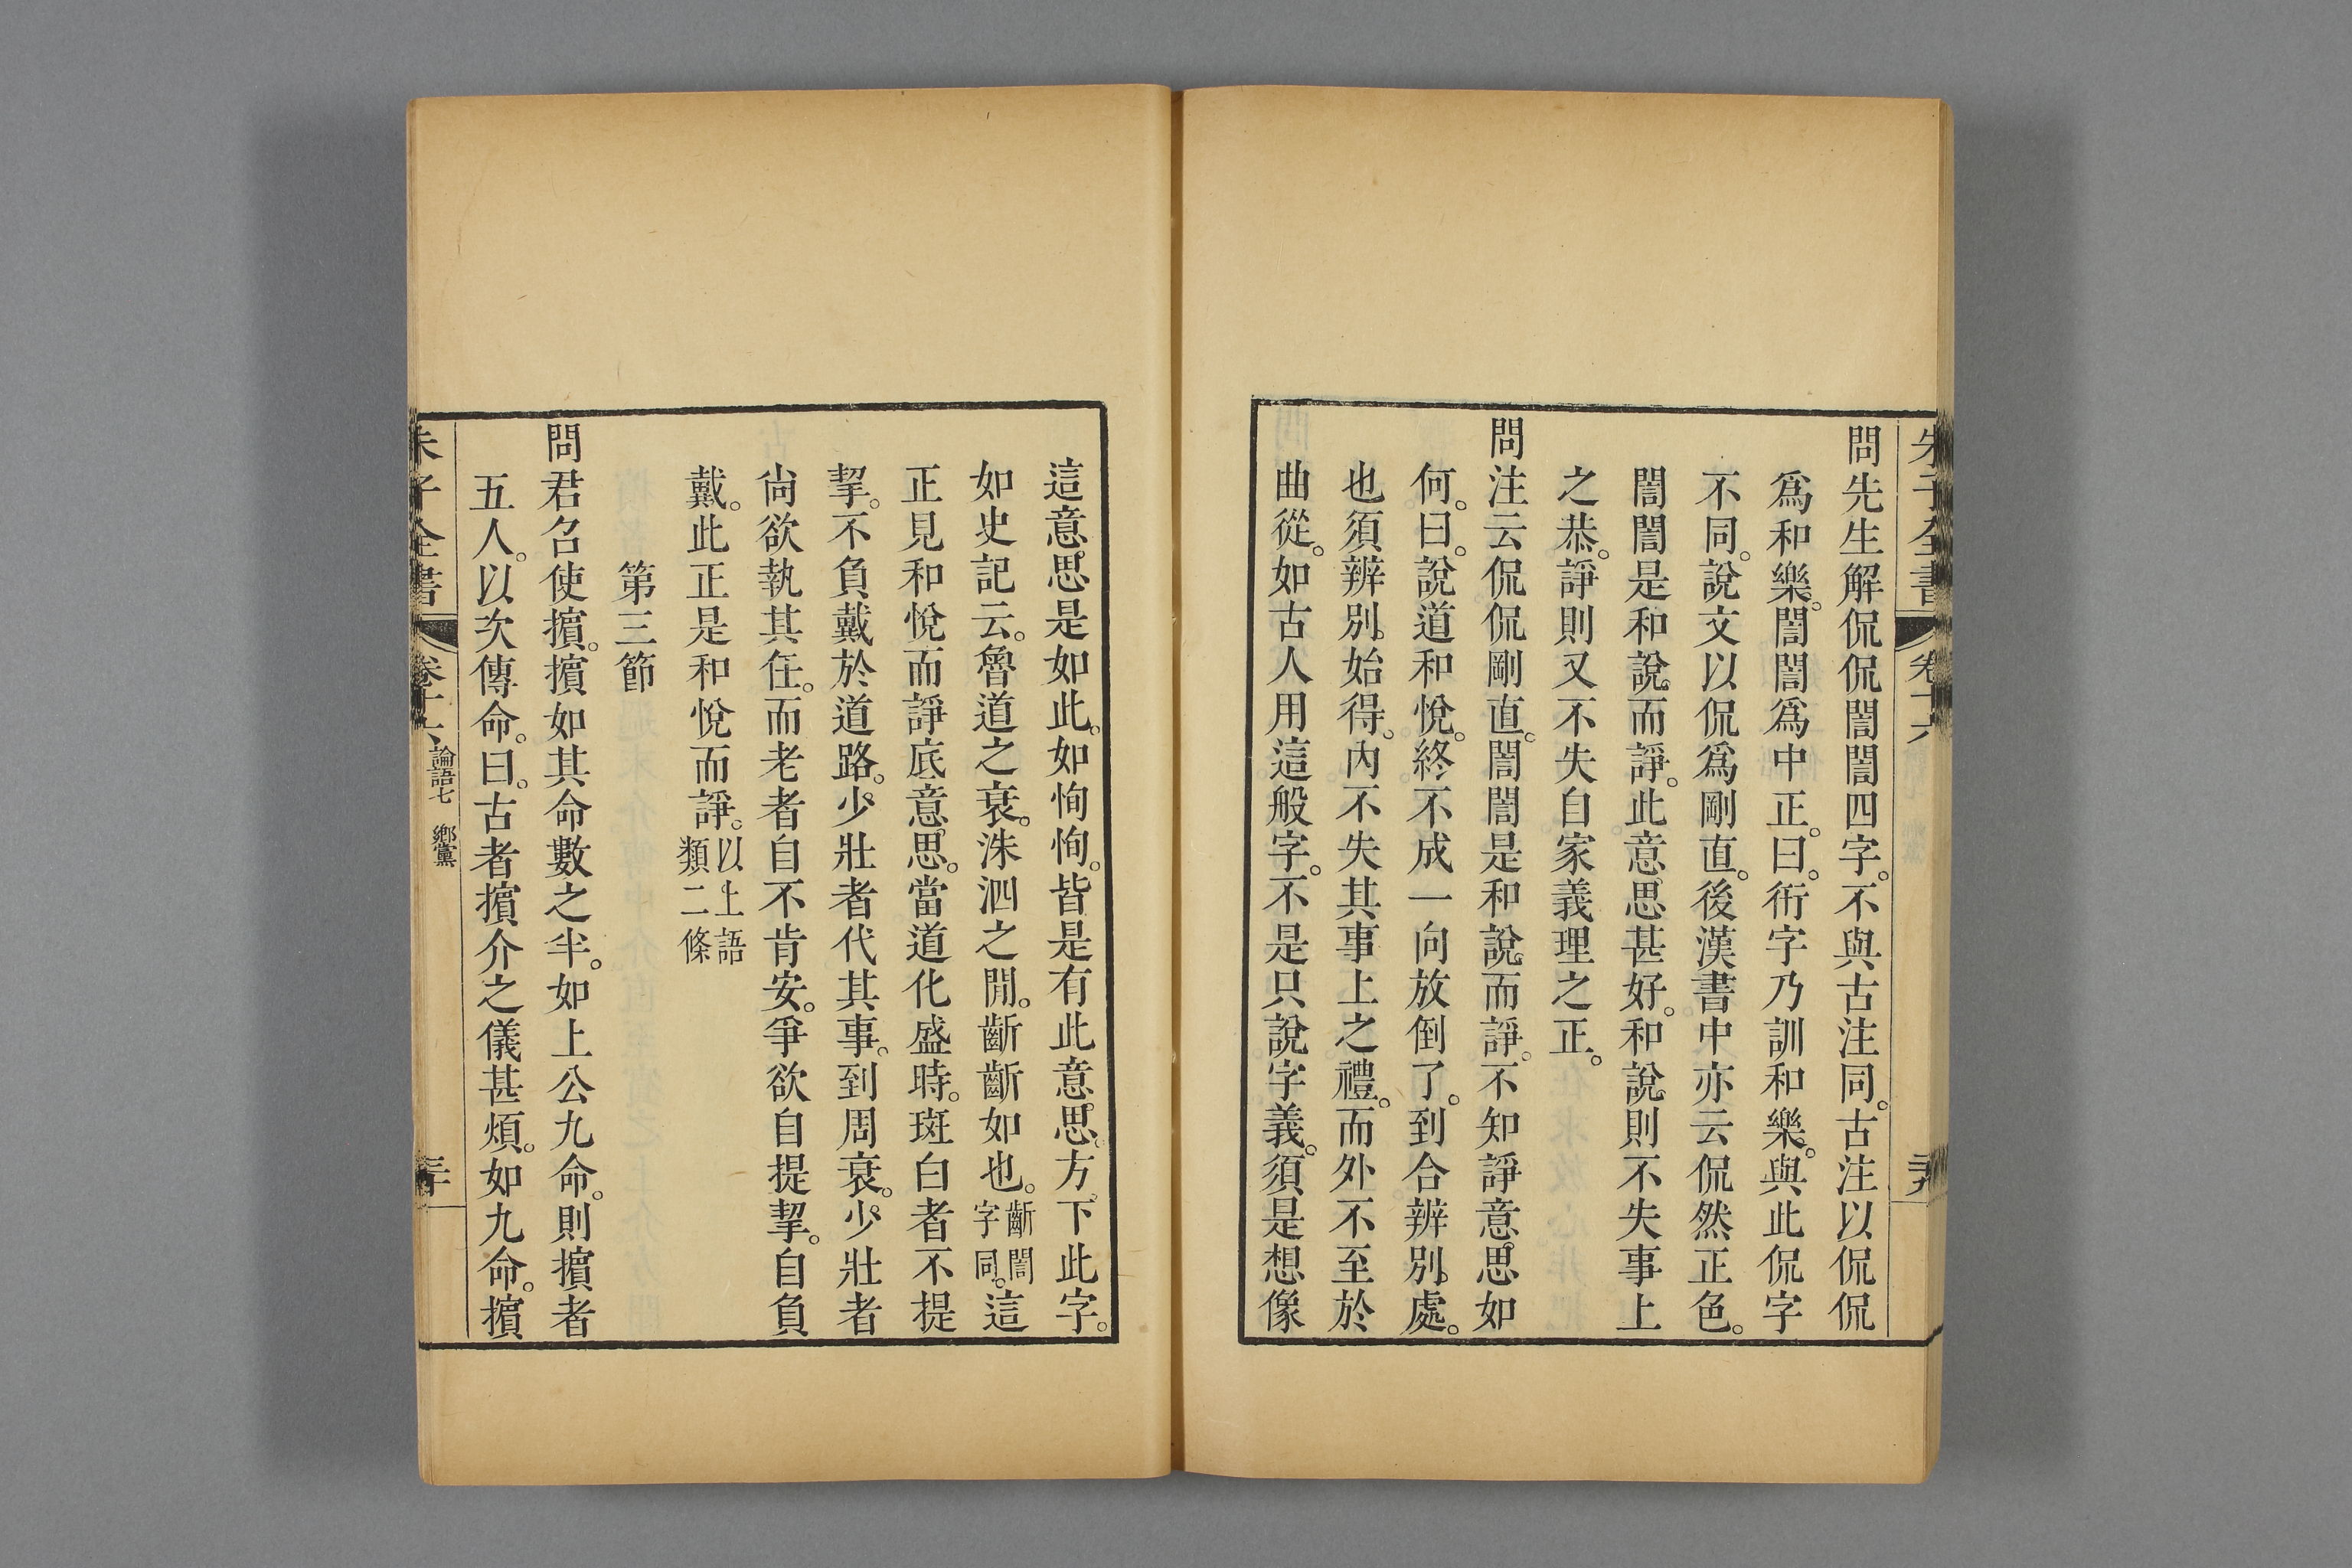 朱子全書 卷十六 二十九
問先生解侃侃誾誾四字。不與古注同。古注以侃侃
爲和樂。誾誾爲中正。曰。衎字乃訓和樂。與此侃字
不同。說文以侃爲剛直。後漢書中亦云侃然正色。
誾誾是和說而諍。此意思甚好。和說則不失事上
之恭。諍則又不失自家義理之正。
問注云侃侃剛直。誾誾是和說而諍。不知諍意思如
何。曰。說道和悅。終不成一向放倒了。到合辨別處。
也須辨別。始得。內不失其事上之禮。而外不至於
曲從。如古人用這般字。不是只說字義。須是想像
這意思是如此。如恂恂。皆是有此意思。方下此字。
如史記云。魯道之衰。洙泗之閒。齗齗如也。齗誾字同。這
正見和悅而諍底意思。當道化盛時。斑白者不提
挈。不負戴於道路。少壯者代其事。到周衰。少壯者
尚欲執其任。而老者自不肯安。爭欲自提挈。自負
戴。此正是和悅而諍。以上語類二條
第三節
問君召使擯。擯如其命數之半。如上公九命。則擯者
五人。以次傳命。曰。古者擯介之儀甚煩。如九命。擯
朱子全書 卷十六 論語七 鄉黨 三十